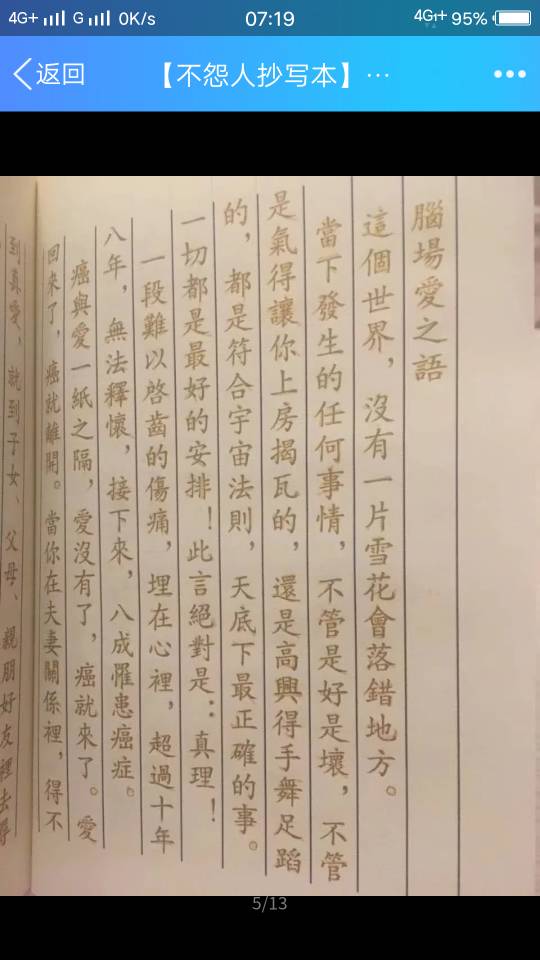 4G+ G 0K/s 07:19 4G1+ 95%
返回 【不怨人抄写本】…
腦場愛之語
這個世界，沒有一片雪花會落錯地方。
當下發生的任何事情，不管是好是壞，不管
是氣得讓你上房揭瓦的，還是高興得手舞足蹈
的，都是符合宇宙法則，天底下最正確的事。
一切都是最好的安排！此言絕對是：真理！
一段難以啓齒的傷痛，埋在心裡，超過十年
八年，無法釋懷，接下來，八成罹患癌症。
癌與愛一紙之隔，愛沒有了，癌就來了。愛
回來了，癌就離開。當你在夫妻關係裡，得不
到真愛，就到子女、父母、親朋好友裡去尋
5/13